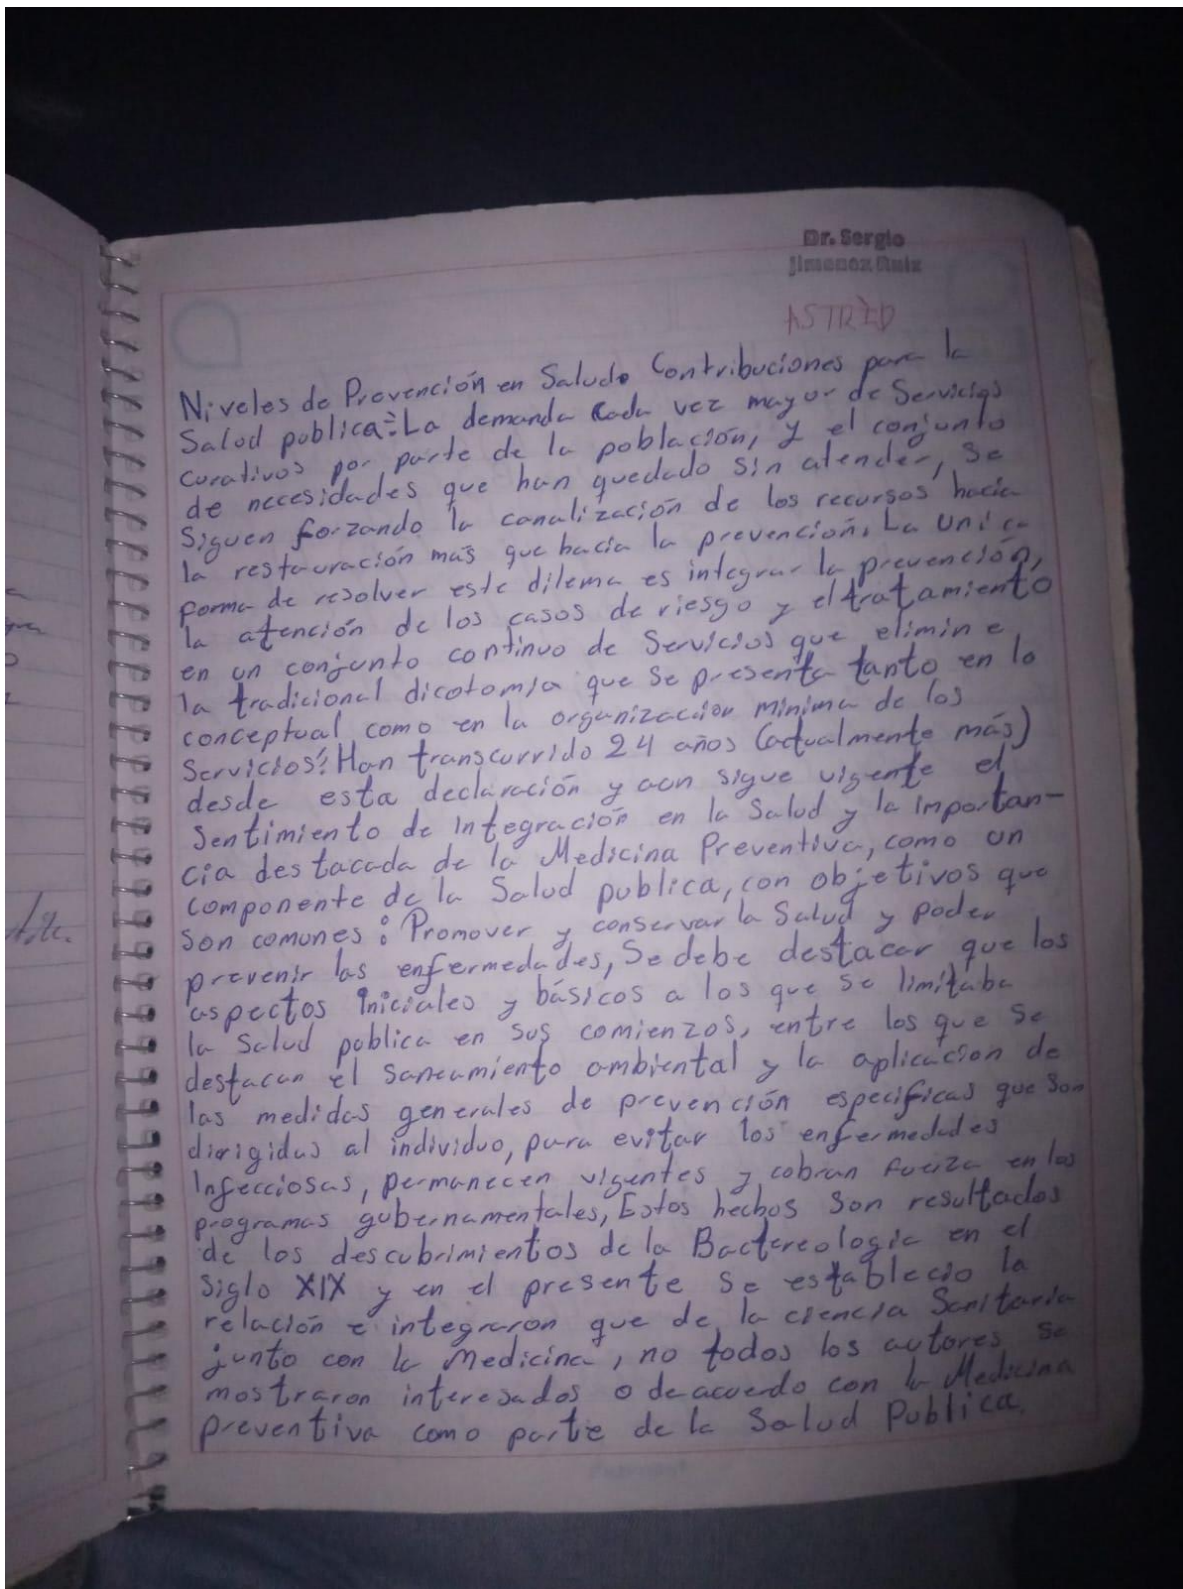 Dr. Sergio
Jimenez Ruiz
ASTRID
Niveles de Prevención en Salud. Contribuciones para la
Salud publica: La demanda cada vez mayor de Servicios
curativos por parte de la población, y el conjunto
de necesidades que han quedado sin atender, se
Siguen forzando la canalización de los recursos hacia
la restauración más que hacia la prevención. La unica
forma de resolver este dilema es integrar la prevención,
la atención de los casos de riesgo y el tratamiento
en un conjunto continuo de Servicios que elimine
la tradicional dicotomia que se presenta tanto en lo
conceptual como en la organización minima de los
Servicios! Han transcurrido 24 años (actualmente más)
desde esta declaración y aun sigue vigente el
Sentimiento de integración en la Salud y la importan-
cia destacada de la Medicina Preventiva, como un
componente de la Salud publica, con objetivos que
son comunes: Promover y conservar la Salud y poder
prevenir las enfermedades, Se debe destacar que los
aspectos iniciales y básicos a los que se limitaba
la Salud publica en sus comienzos, entre los que se
destacan el saneamiento ambiental y la aplicacion de
las medidas generales de prevención especificas que son
dirigidas al individuo, para evitar las enfermedades
Infecciosas, permanecen vigentes y cobran fuerza en los
programas gubernamentales, Estos hechos son resultados
de los descubrimientos de la Bactereologia en el
Siglo XIX y en el presente se establecio la
relación e integraron que de la ciencia Sanitaria
junto con la Medicina, no todos los autores se
mostraron interesados o de acuerdo con la Medicina
preventiva como parte de la Salud Publica.